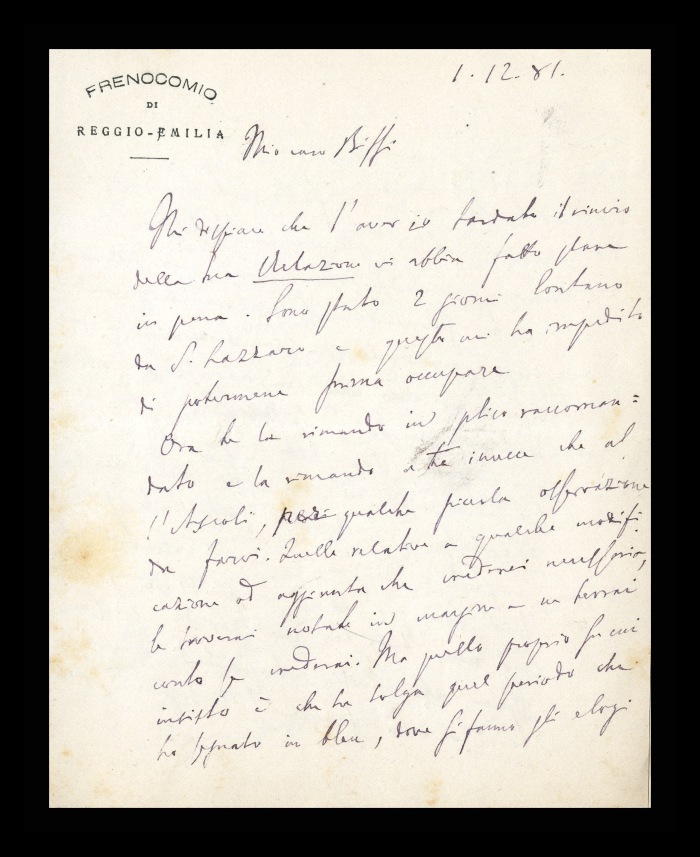 FRENOCOMIO
DI
REGGIO-EMILIA
1. 12. 81.
Mio caro Biffi
Mi dispiace che l'aver io tardato il rinvio
della tua Relazione vi abbia fatto stare
in pena. Sono stato 2 giorni lontano
da S. Lazzaro e questo mi ha impedito
di potermene prima occupare
Ora te la rimando in plico raccoman=
dato e la rimando a te invece che al
l'Ascoli, qualche piccola osservazione
da farvi. Quelle relative a qualche modifi
cazione od aggiunta che crederei necessaria,
le troverai notate in margine e ne terrai
conto se crederai. Ma quello proprio su cui
insisto è che tu tolga quel periodo che
ho segnato in bleu, dove si fanno gli elogi